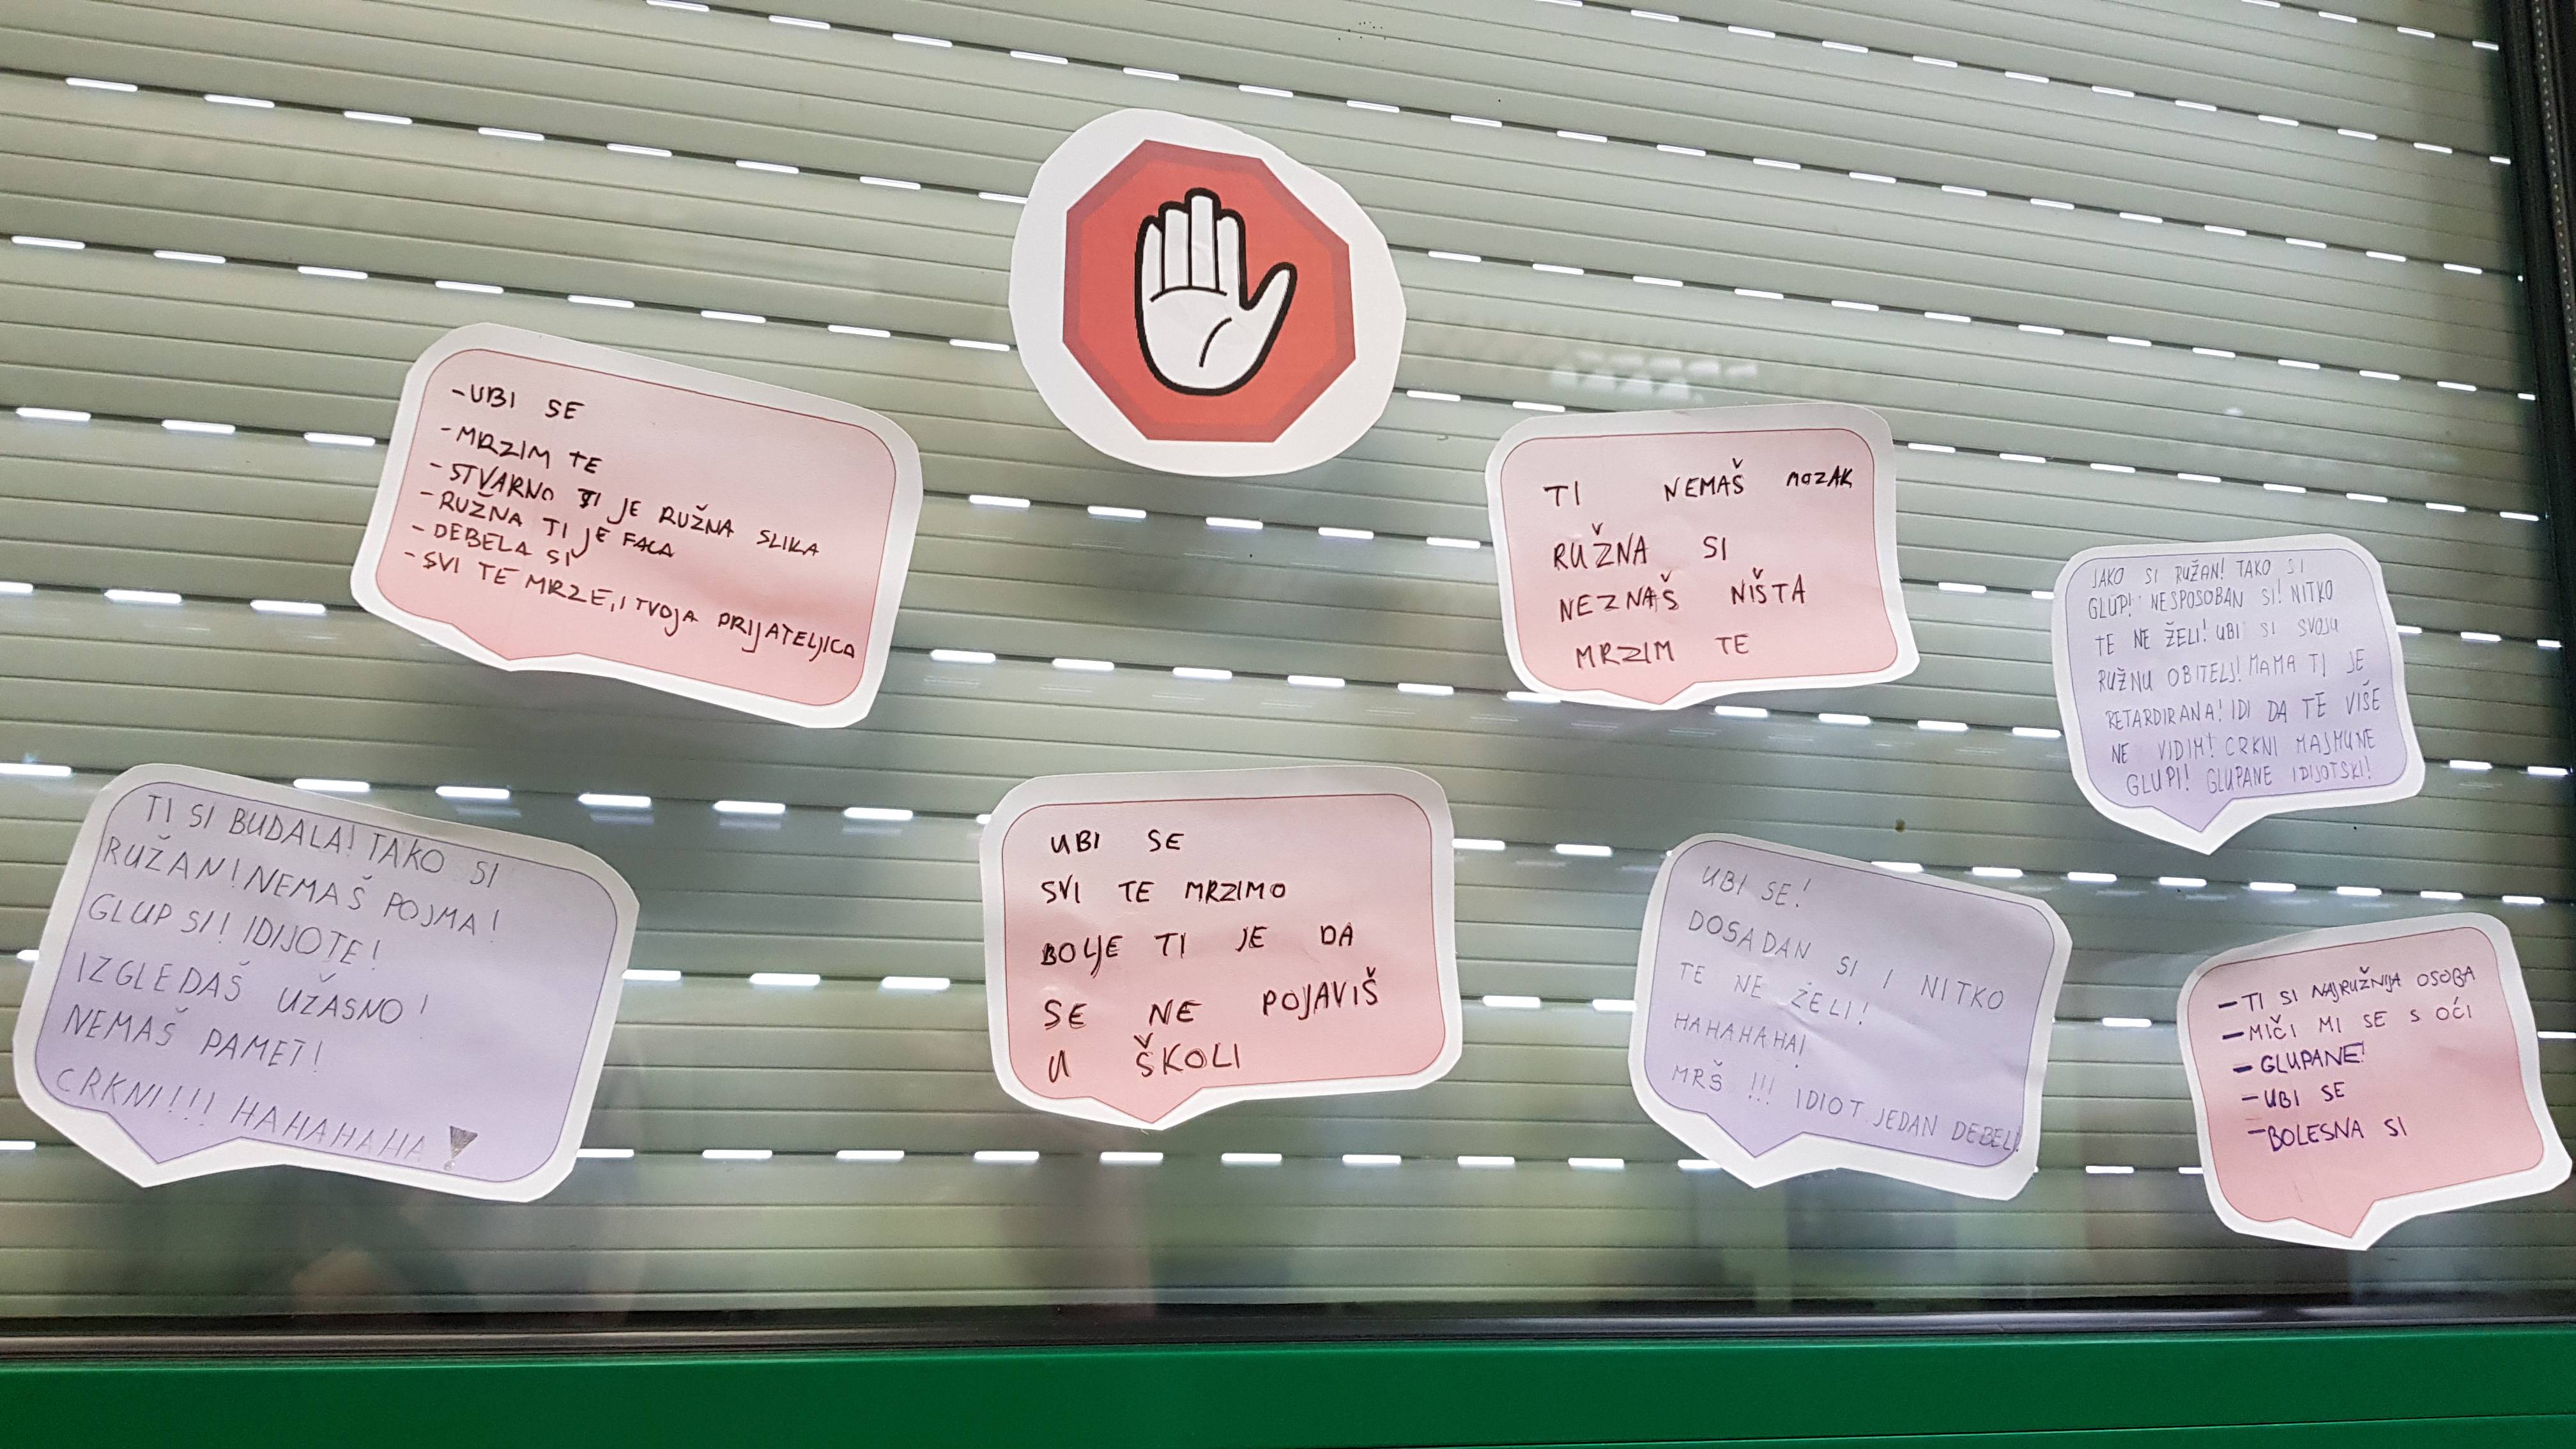 -UBI SE
-MRZIM TE
-STVARNO TI JE RUŽNA SLIKA
-RUŽNA TI JE FACA
-DEBELA SI
-SVI TE MRZE, I TVOJA PRIJATELJICA
TI NEMAŠ MOZAK
RUŽNA SI
NEZNAŠ NIŠTA
MRZIM TE
JAKO SI RUŽAN! TAKO SI
GLUP! NESPOSOBAN SI! NITKO
TE NE ŽELI! UBI SI SVOJU
RUŽNU OBITELJ! MAMA TI JE
RETARDIRANA! IDI DA TE VIŠE
NE VIDIM! CRKNI MAJMUNE
GLUPI! GLUPANE IDIJOTSKI!
TI SI BUDALA! TAKO SI
RUŽAN! NEMAŠ POJMA!
GLUP SI! IDIJOTE!
IZGLEDAŠ UŽASNO!
NEMAŠ PAMET!
CRKNI!!! HAHAHAHA!
UBI SE
SVI TE MRZIMO
BOLJE TI JE DA
SE NE POJAVIŠ
U ŠKOLI
UBI SE!
DOSADAN SI I NITKO
TE NE ŽELI!
HAHAHAHA!
MRŠ!!! IDIOT JEDAN DEBELI
-TI SI NAJRUŽNIJA OSOBA
-MIČI MI SE S OĆI
-GLUPANE!
-UBI SE
-BOLESNA SI